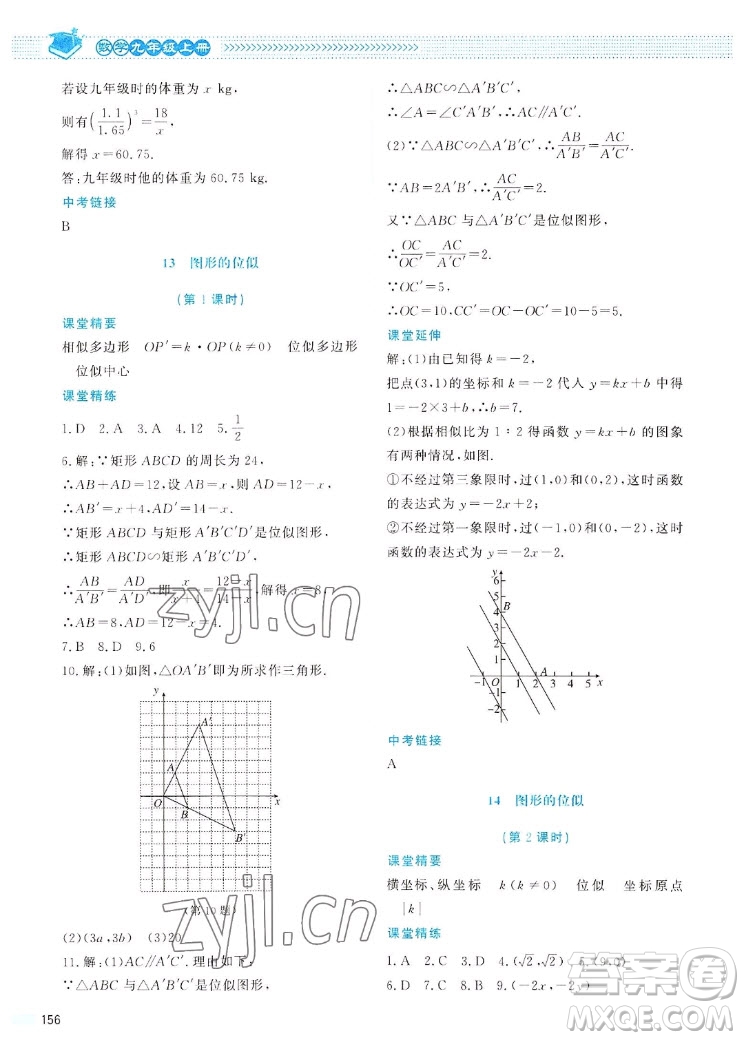 数学九年级上册
若设九年级时的体重为 x kg,
则有(1.1/1.65)³=18/x,
解得 x=60.75.
答:九年级时他的体重为 60.75 kg.
中考链接
B
13 图形的位似
(第 1 课时)
课堂精要
相似多边形 OP′=k·OP(k≠0) 位似图形
位似中心
课堂精练
1.D 2.A 3.A 4.12 5.1/2
6.解:∵矩形 ABCD 的周长为 24,
∴AB+AD=12,设 AB=x,则 AD=12-x,
∴AB′=x+4,AD′=14-x.
∵矩形 ABCD 与矩形 A′B′C′D′是位似图形,
∴矩形 ABCD∽矩形 A′B′C′D′,
∴AB/A′B′=AD/A′D′,即 x/(x+4)=(12-x)/(14-x),解得 x=8,
∴AB=8,AD=12-8=4.
7.B 8.D 9.6
10.解:(1)如图,△OA′B′即为所求作三角形.
y
A′
A
O
x
B
B′
(第 10 题)
(2)(3a,3b) (3)20
11.解:(1)AC∥A′C′.理由如下:
∵△ABC 与△A′B′C′是位似图形,
156
∴△ABC∽△A′B′C′,
∴∠A=∠C′A′B′,∴AC∥A′C′.
(2)∵△ABC∽△A′B′C′,∴AB/A′B′=AC/A′C′.
∵AB=2A′B′,∴AC/A′C′=2.
又∵△ABC 与△A′B′C′是位似图形,
∴OC/OC′=AC/A′C′=2.
∵OC′=5,
∴OC=10,CC′=OC-OC′=10-5=5.
课堂延伸
解:(1)由已知得 k=-2,
把点(3,1)的坐标和 k=-2 代人 y=kx+b 中得
1=-2×3+b,∴b=7.
(2)根据相似比为 1∶2 得函数 y=kx+b 的图象
有两种情况,如图.
①不经过第三象限时,过(1,0)和(0,2),这时函数
的表达式为 y=-2x+2;
②不经过第一象限时,过(-1,0)和(0,-2),这时
函数的表达式为 y=-2x-2.
y
6
5
4
3
2
1
B
-1 O 1 2 A 3 4 5 x
-1
-2
中考链接
A
14 图形的位似
(第 2 课时)
课堂精要
横坐标、纵坐标 k(k≠0) 位似 坐标原点
|k|
课堂精练
1.A 2.C 3.D 4.(√2,√2) 5.(9,0)
6.D 7.A 8.D 9.(-2x,-2y)
zyjl.cn
zyjl.cn
答案圈
MXQE.COM